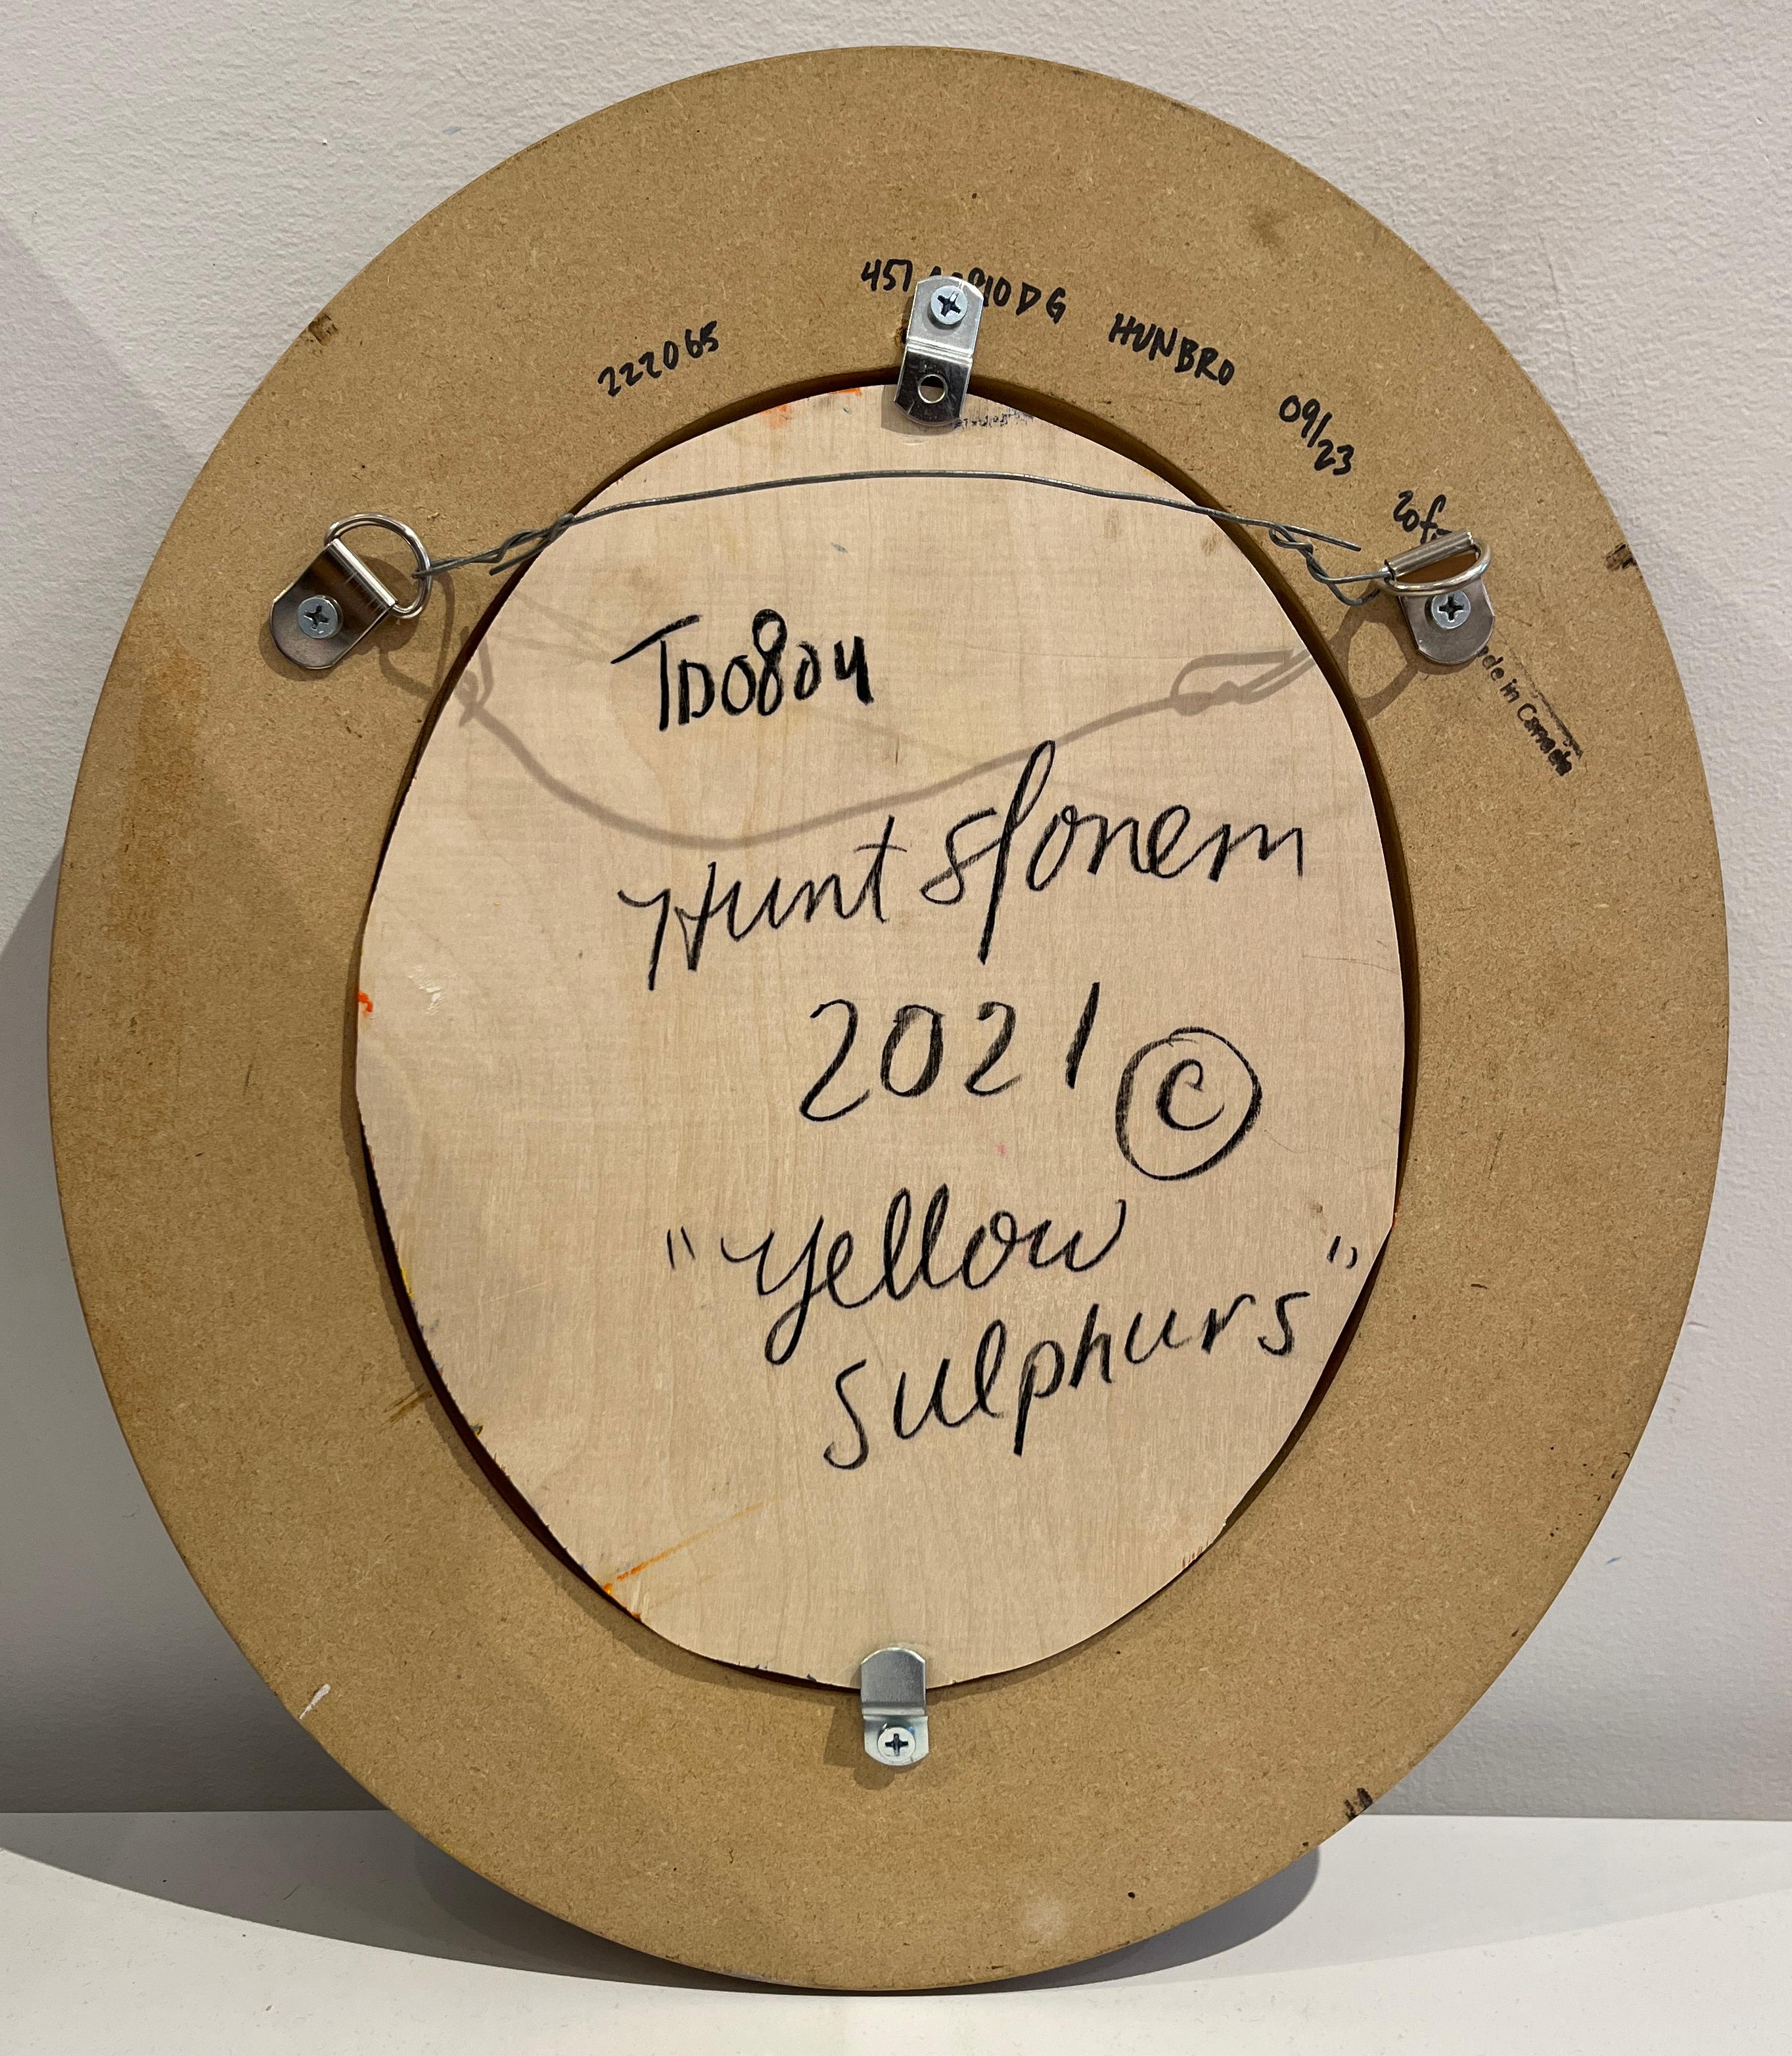 222065
457 10DG
HUNBRO
09/23
2of
Made in Canada
TD0804
Hunt Slonem
2021 ©
"Yellow
Sulphurs"